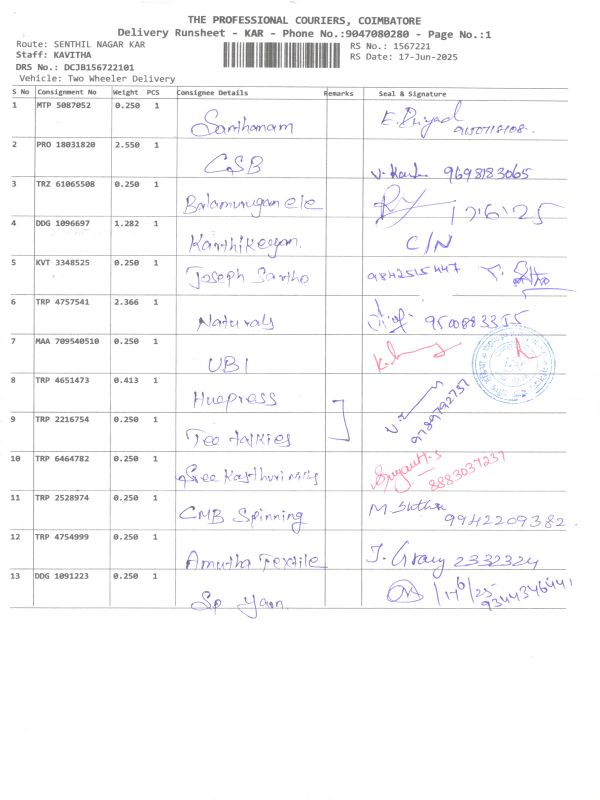 THE PROFESSIONAL COURIERS, COIMBATORE
Delivery Runsheet - KAR - Phone No.:9047080280 - Page No.:1
Route: SENTHIL NAGAR KAR RS No.: 1567221
Staff: KAVITHA RS Date: 17-Jun-2025
DRS No.: DCJB156722101
Vehicle: Two Wheeler Delivery
S No Consignment No Weight PCS Consignee Details Remarks Seal & Signature
1 MTP 5087052 0.250 1 Santhanam
2 PRO 18031820 2.550 1 CSB 9698183065
3 TRZ 61065508 0.250 1 Balamurugan ele 17-6-25
4 DDG 1096697 1.282 1 Karthikeyan. C/N
5 KVT 3348525 0.250 1 Joseph Santho 9842515447
6 TRP 4757541 2.366 1 Naturals 9500883355
7 MAA 709540510 0.250 1 UBI
8 TRP 4651473 0.413 1 Huepress
9 TRP 2216754 0.250 1 Tee talkies 9789792757
10 TRP 6464782 0.250 1 Sree Kasthuri mills 8883037237
11 TRP 2528974 0.250 1 CMB Spinning 9942209382.
12 TRP 4754999 0.250 1 Amutha Textile 2332324
13 DDG 1091223 0.250 1 SP Yarn. 17/6/25 9344346441